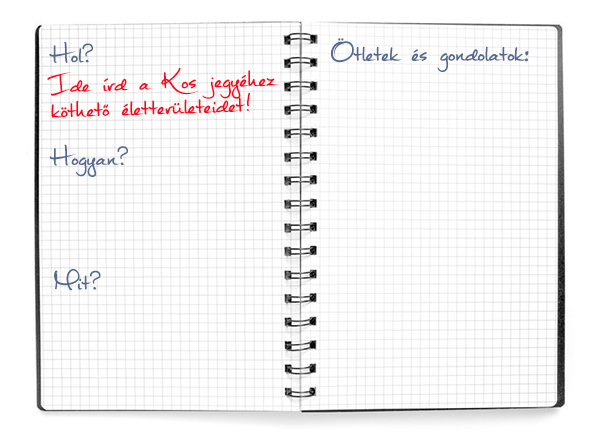 Hol?
Ide írd a Kos jegyéhez
köthető életterületeidet!
Hogyan?
Mit?
Ötletek és gondolatok: